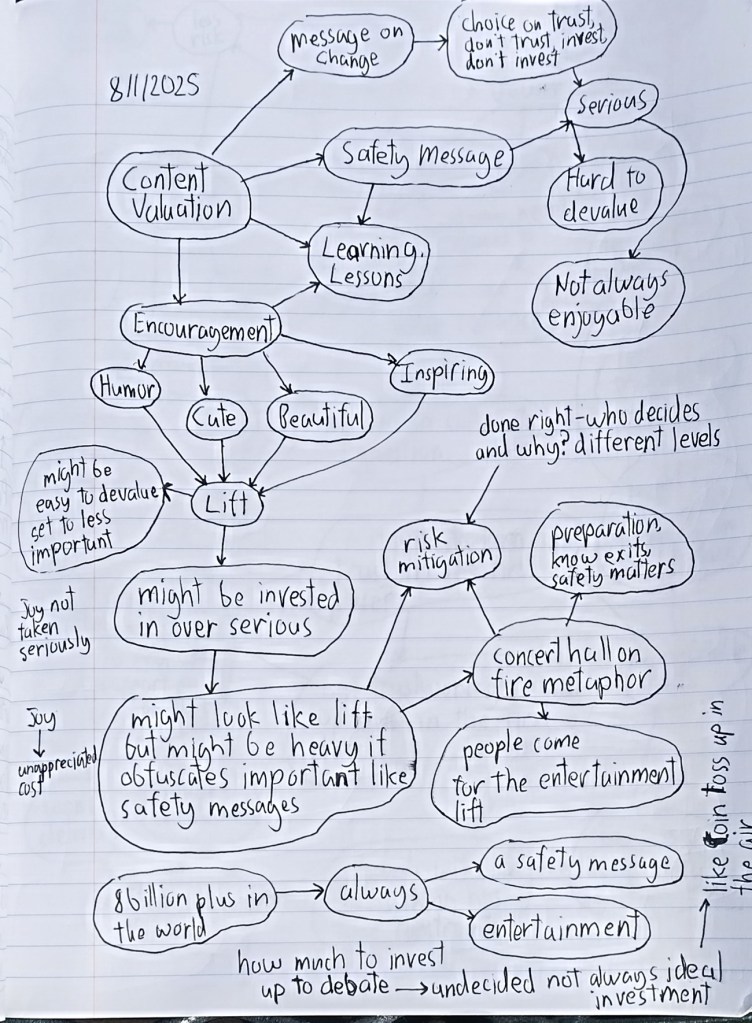 8/1/2025
message on
change
choice on trust,
don't trust, invest,
don't invest
serious
Safety Message
Content
Valuation
Hard to
devalue
Learning.
Lessons
Not always
enjoyable
Encouragement
Inspiring
Humor
Cute
Beautiful
done right-who decides
and why? different levels
might be
easy to devalue
set to less
important
Lift
risk
mitigation
preparation,
know exits,
safety matters
might be invested
in over serious
Joy not
taken
seriously
concert hall on
fire metaphor
might look like lift
but might be heavy if
obfuscates important like
safety messages
Joy
unappreciated
cost
people come
for the entertainment
lift
like coin toss up in
the air
8billion plus in
the world
always
a safety message
entertainment
how much to invest
up to debate → undecided not always ideal
investment